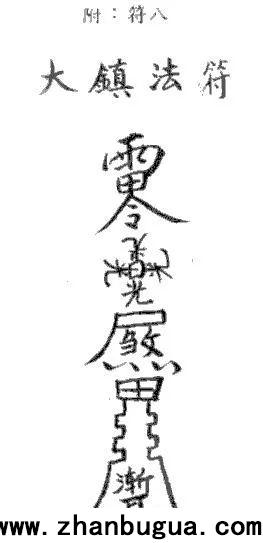 附：符八
大鎮法符
雷
令
田
漸
www.zhanbugua.com